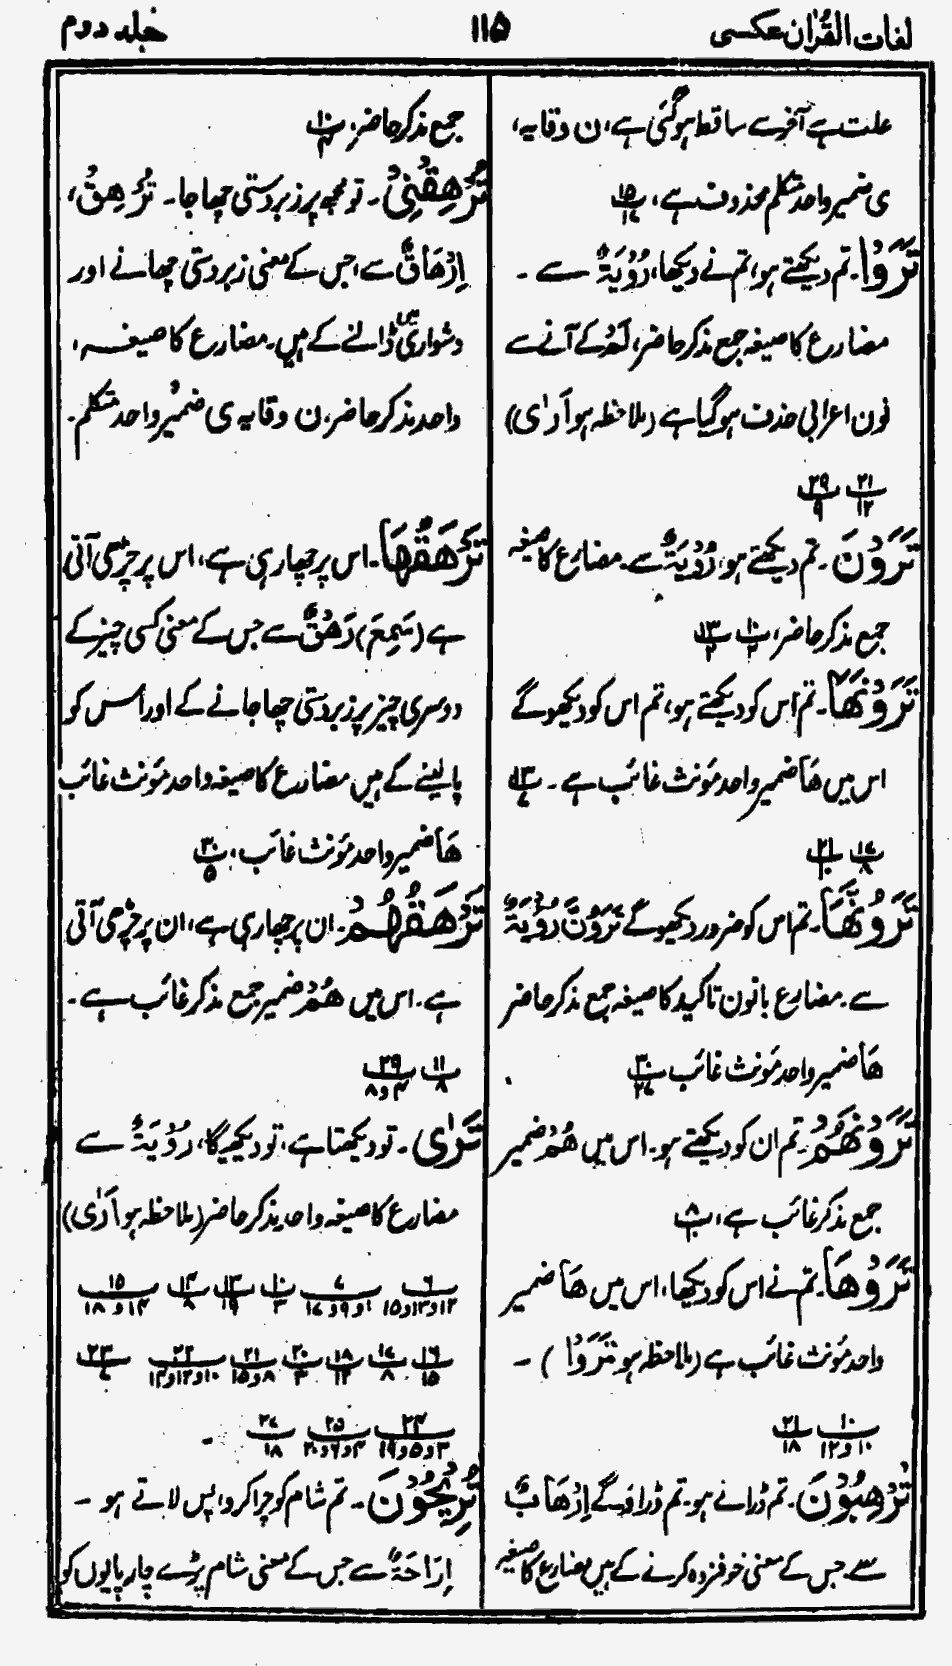 لغات القرآن عکسی
۱۱۵
جلد دوم
علت ہے آخر سے ساقط ہو گئی ہے، ن وقایہ،
ی ضمیر واحد متکلم محذوف ہے، ۱۵/۱۷
تَرَوْا۔ تم دیکھتے ہو، تم نے دیکھا، رُؤْیَۃٌ سے ۔
مضارع کا صیغہ جمع مذکر حاضر، لَمْ کے آنے سے
نون اعرابی حذف ہو گیا ہے (ملاحظہ ہو اَرٰی)
۲۱/۱۲ ۲۹/۹
تَرَوْنَ ۔ تم دیکھتے ہو، رُؤْیَۃٌ سے ۔ مضارع کا صیغہ
جمع مذکر حاضر، ۱۰/۲ ۱۳/۲
تَرَوْنَهَا۔ تم اس کو دیکھتے ہو، تم اس کو دیکھو گے
اس میں ھَا ضمیر واحد مؤنث غائب ہے ۔ ۱۳/۷
۱۷/۸ ۲۱/۱۰
تَرَوُنَّهَا۔ تم اس کو ضرور دیکھو گے تَرَوُنَّ رُؤْیَۃٌ
سے ۔ مضارع بانون تاکید کا صیغہ جمع مذکر حاضر
ھَا ضمیر واحد مؤنث غائب ۳۰/۲۷
تَرَوْنَهُمْ۔ تم ان کو دیکھتے ہو ۔ اس میں ھُمْ ضمیر
جمع مذکر غائب ہے، ۸/۱۰
تَرَوْهَا۔ تم نے اس کو دیکھا، اس میں ھَا ضمیر
واحد مؤنث غائب ہے (ملاحظہ ہو تَرَوْا) ۔
۱۰/۱۰ و ۱۲ ۲۱/۱۸
تُرْهِبُوْنَ۔ تم ڈراتے ہو۔ تم ڈراؤ گے اِرْهَابٌ
سے جس کے معنی خوفزدہ کرنے کے ہیں مضارع کا صیغہ
جمع مذکر حاضر، ۱۰/۴
تُرْهِقْنِیْ ۔ تو مجھ پر زبردستی چھا جا ۔ تُرْهِقُ،
اِرْهَاقٌ سے، جس کے معنی زبردستی چھانے اور
دشواری میں ڈالنے کے ہیں۔ مضارع کا صیغہ،
واحد مذکر حاضر، ن وقایہ ی ضمیر واحد متکلم۔
تَرْهَقُهَا۔ اس پر چھا رہی ہے، اس پر چڑھی آتی
ہے (سَمِعَ) رَهْقٌ سے جس کے معنی کسی چیز کے
دوسری چیز پر زبردستی چھا جانے کے اور اس کو
پا لینے کے ہیں مضارع کا صیغہ واحد مؤنث غائب
ھَا ضمیر واحد مؤنث غائب، ۳۰/۵
تَرْهَقُهُمْ۔ ان پر چھا رہی ہے، ان پر چڑھی آتی
ہے ۔ اس میں ھُمْ ضمیر جمع مذکر غائب ہے ۔
۱۱/۸ ۲۹/۴ و ۸
تَرٰی ۔ تو دیکھتا ہے، تو دیکھیگا، رُؤْیَۃٌ سے
مضارع کا صیغہ واحد مذکر حاضر (ملاحظہ ہو اَرٰی)
۶/۱۲ و ۱۳ و ۱۵ ۷/۱ و ۹ و ۱۷ ۱۰/۳ ۱۳/۱۹ ۱۴/۸ ۱۵/۱۴ و ۱۸
۱۶/۱۵ ۱۷/۸ ۱۸/۱۲ ۲۰/۳ ۲۱/۸ و ۱۵ ۲۲/۱۰ و ۱۲ و ۱۴ ۲۳/۷
۲۴/۳ و ۵ و ۱۹ ۲۵/۴ و ۶ و ۲۰ ۲۷/۱۸ ۔
تُرِیْحُوْنَ ۔ تم شام کو چرا کر واپس لاتے ہو ۔
اِرَاحَۃٌ سے جس کے معنی شام پڑے چار پایوں کو